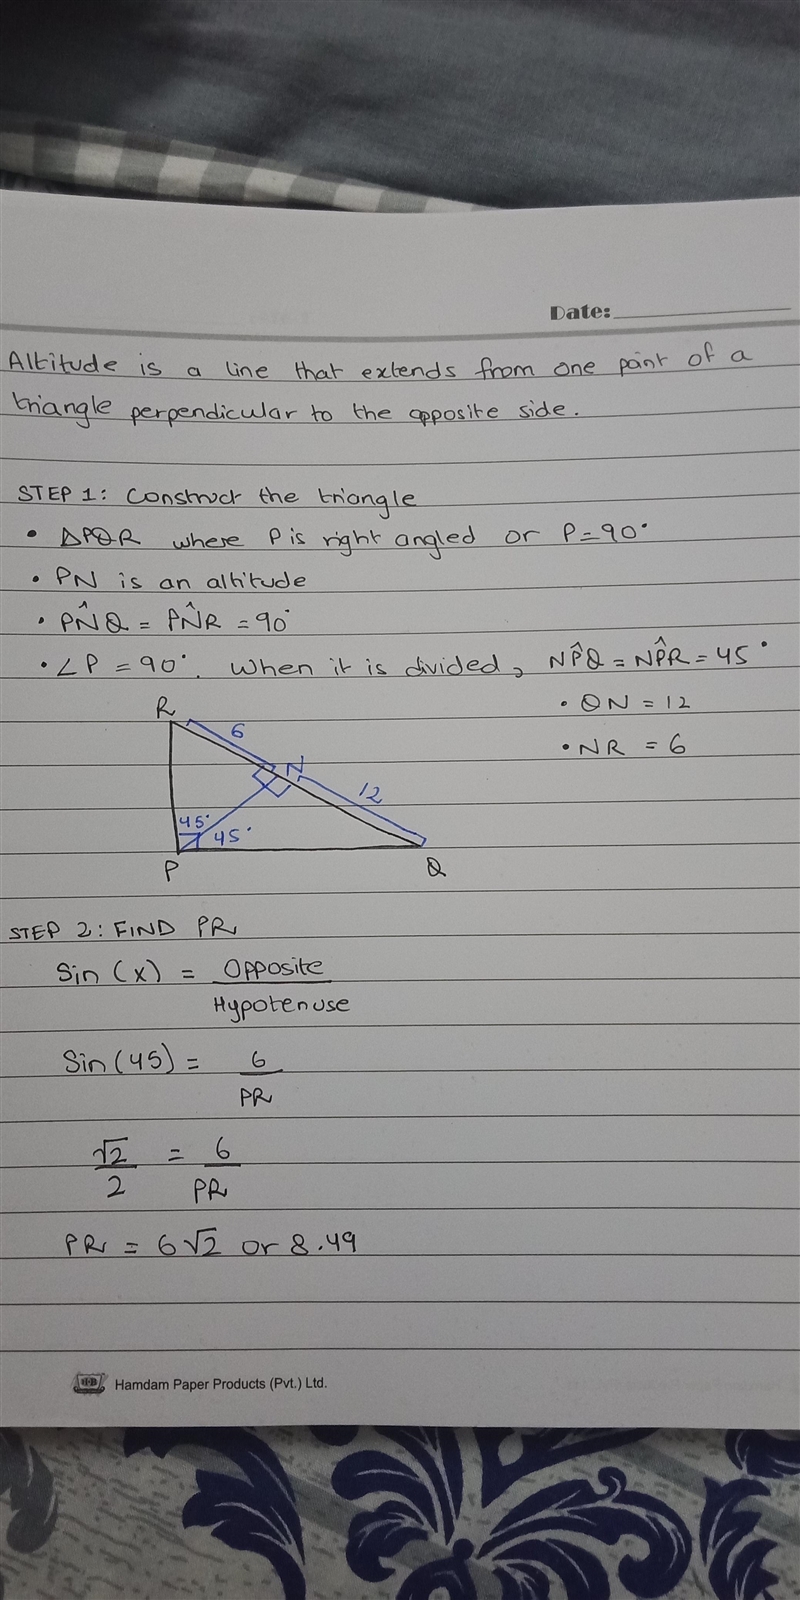 Date:
Altitude is a line that extends from one point of a
triangle perpendicular to the opposite side.
STEP 1: Construct the triangle
• △PQR where P is right angled or P = 90°
• PN is an altitude
• PN̂Q = PN̂R = 90°
• ∠P = 90°. When it is divided, NP̂Q = NP̂R = 45°
• QN = 12
• NR = 6
R
6
N
12
45°
45°
P
Q
STEP 2: FIND PR
Sin (x) = Opposite
Hypotenuse
Sin (45) = 6
PR
√2 = 6
2 PR
PR = 6√2 or 8.49
Hamdam Paper Products (Pvt.) Ltd.